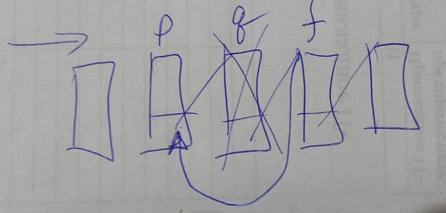 p q f